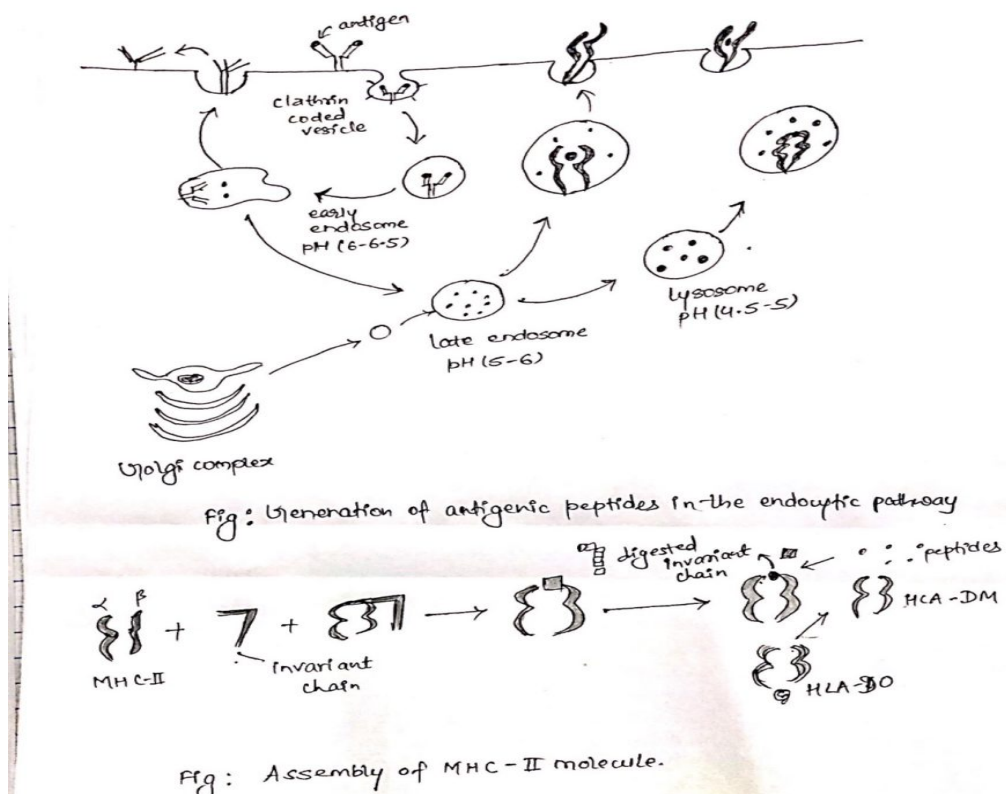 antigen
clathrin
coded
vesicle
early
endosome
pH (6-6.5)
late endosome
pH (5-6)
lysosome
pH (4.5-5)
Golgi complex
Fig: Generation of antigenic peptides in the endocytic pathway
α β
MHC-II
+
invariant
chain
+
digested
invariant
chain
peptides
HLA-DM
HLA-DO
Fig: Assembly of MHC-II molecule.